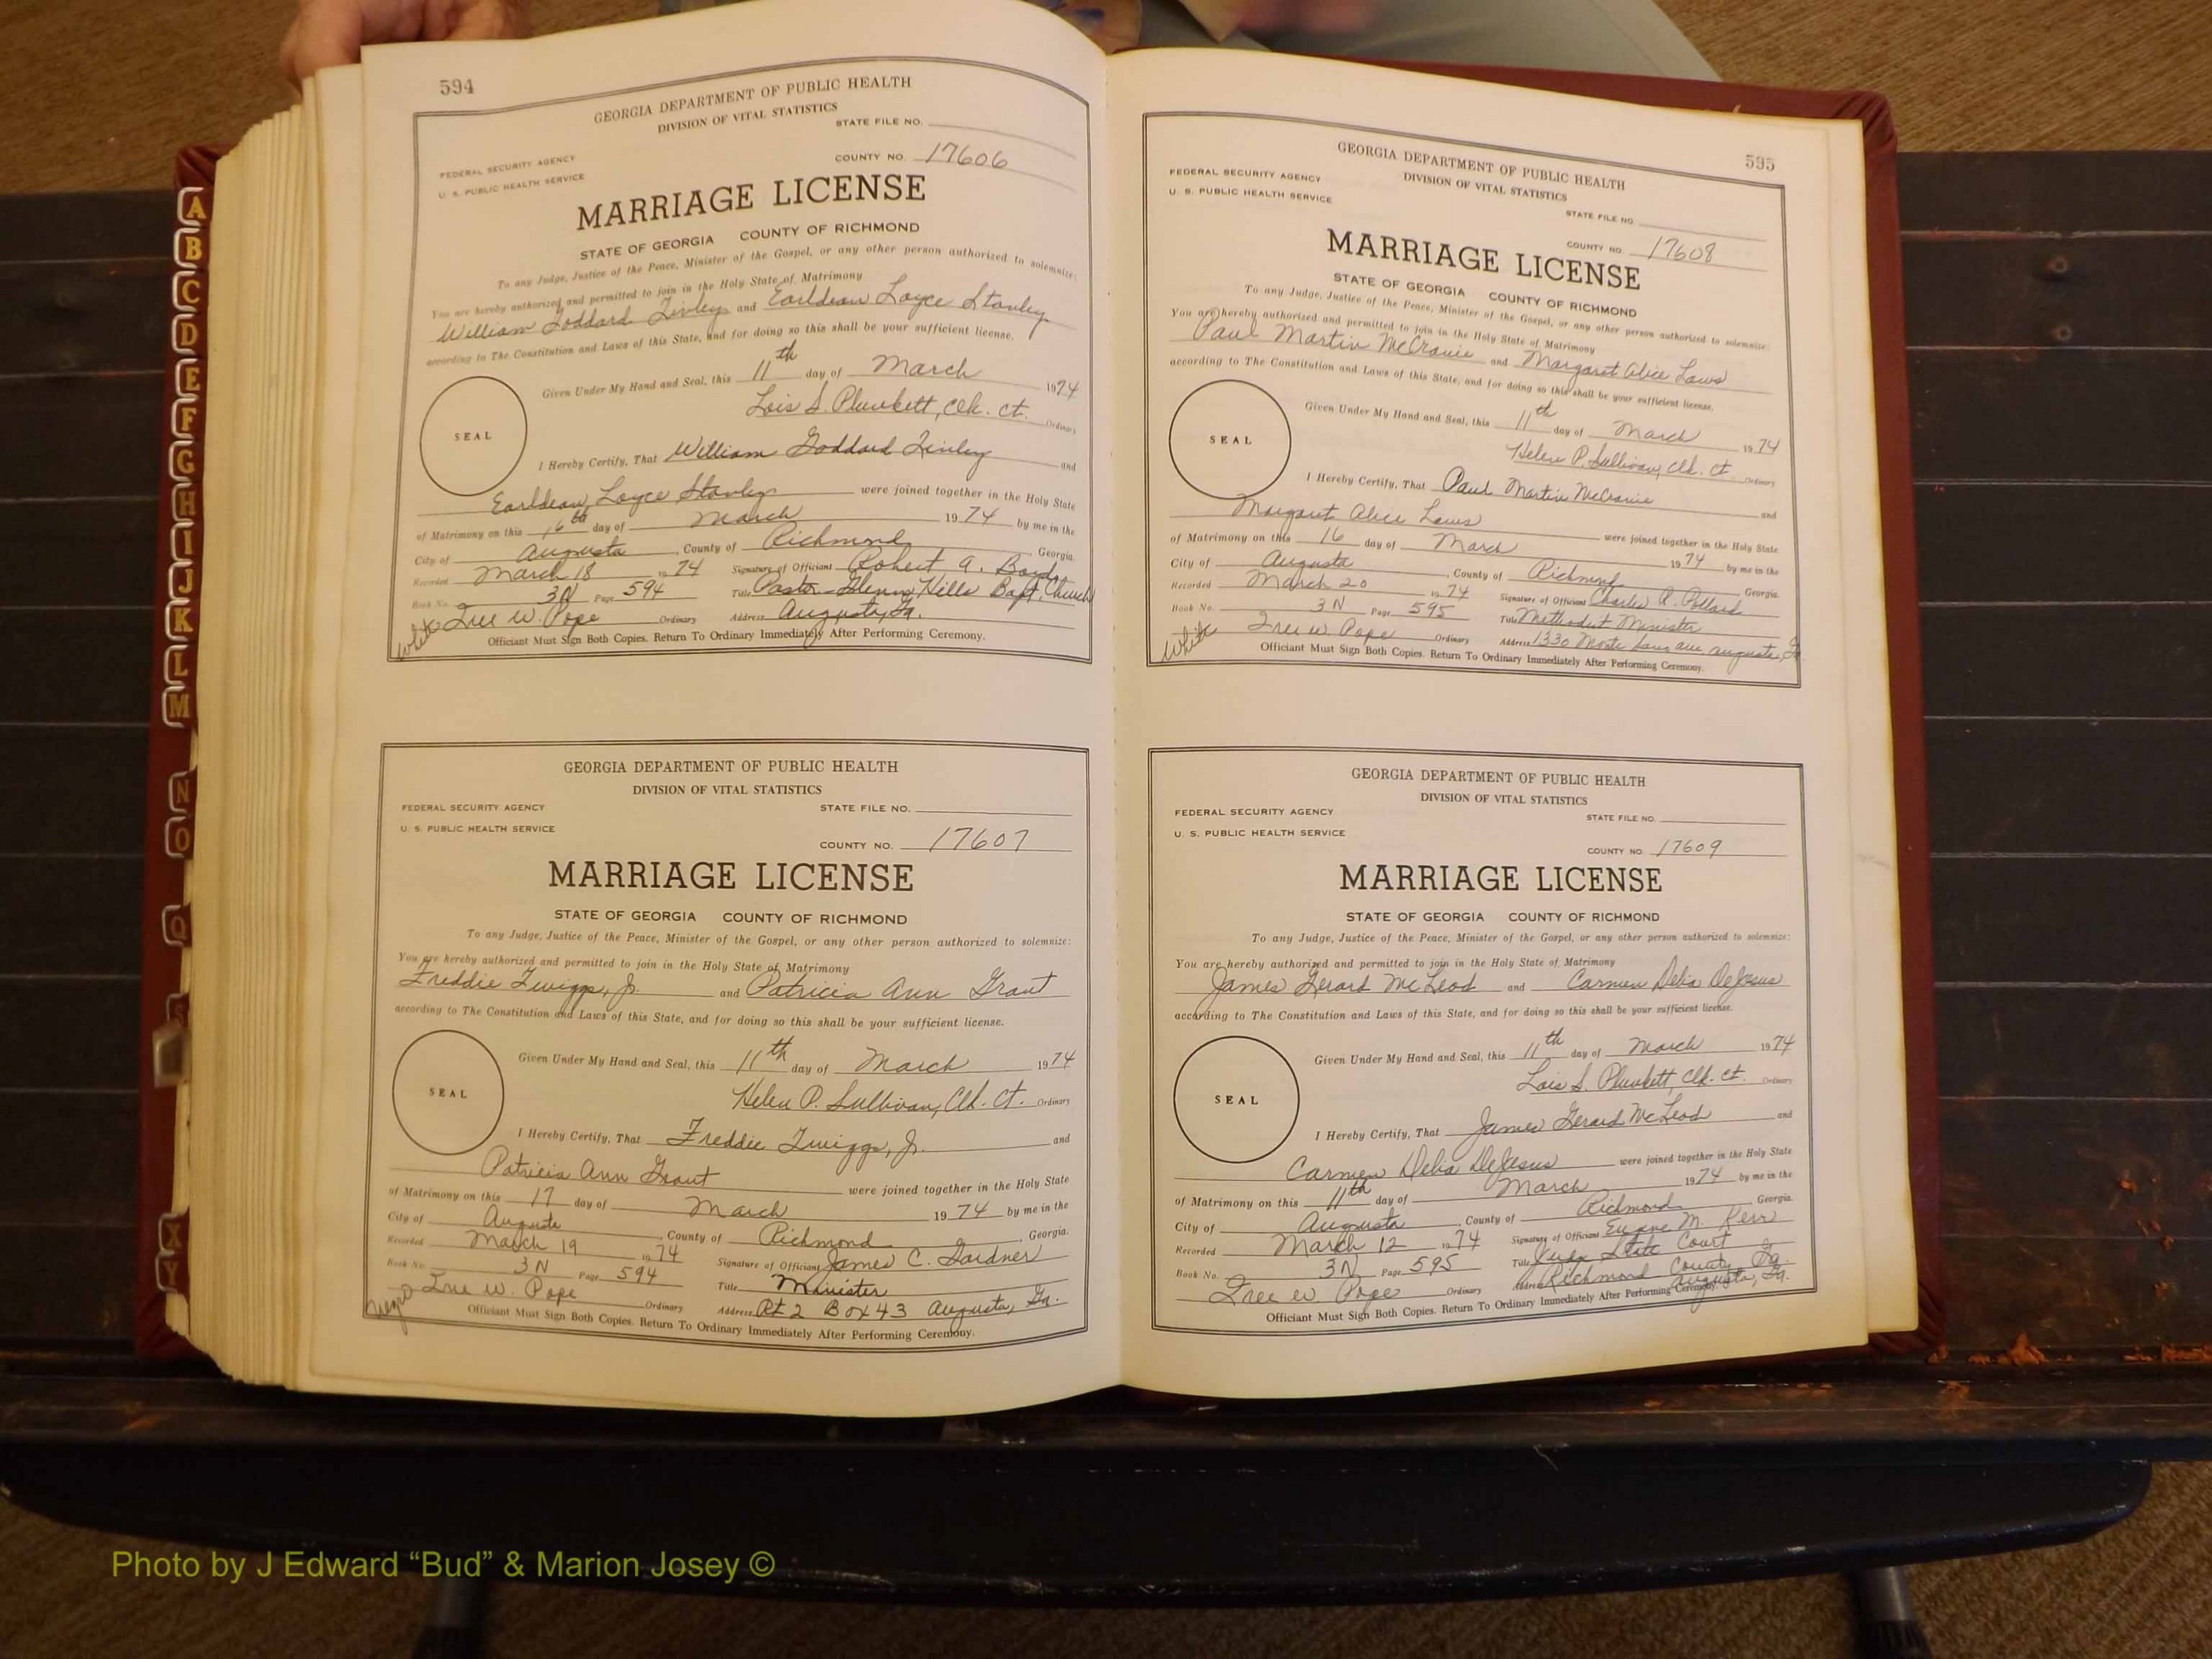 594
GEORGIA DEPARTMENT OF PUBLIC HEALTH
DIVISION OF VITAL STATISTICS
STATE FILE NO.
FEDERAL SECURITY AGENCY
U. S. PUBLIC HEALTH SERVICE
COUNTY NO. 17606
MARRIAGE LICENSE
STATE OF GEORGIA COUNTY OF RICHMOND
To any Judge, Justice of the Peace, Minister of the Gospel, or any other person authorized to solemnize:
You are hereby authorized and permitted to join in the Holy State of Matrimony
William Goddard Tinley and Earldean Loyce Stanley
according to The Constitution and Laws of this State, and for doing so this shall be your sufficient license.
Given Under My Hand and Seal, this 11th day of March 1974
Lois S. Plunkett, Clk. Ct. Ordinary
SEAL
I Hereby Certify, That William Goddard Tinley and
Earldean Loyce Stanley were joined together in the Holy State
of Matrimony on this 16th day of March 1974 by me in the
City of Augusta, County of Richmond Georgia.
Recorded March 18 1974 Signature of Officiant Robert A. Boyd
Book No. 3N Page 594 Title Pastor - Glenn Hills Bapt. Church
White Iree W. Pope Ordinary Address Augusta, Ga.
Officiant Must Sign Both Copies. Return To Ordinary Immediately After Performing Ceremony.
GEORGIA DEPARTMENT OF PUBLIC HEALTH
DIVISION OF VITAL STATISTICS
FEDERAL SECURITY AGENCY STATE FILE NO.
U. S. PUBLIC HEALTH SERVICE
COUNTY NO. 17607
MARRIAGE LICENSE
STATE OF GEORGIA COUNTY OF RICHMOND
To any Judge, Justice of the Peace, Minister of the Gospel, or any other person authorized to solemnize:
You are hereby authorized and permitted to join in the Holy State of Matrimony
Freddie Twiggs, Jr. and Patricia Ann Grant
according to The Constitution and Laws of this State, and for doing so this shall be your sufficient license.
Given Under My Hand and Seal, this 11th day of March 1974
Helen P. Sullivan, Clk. Ct. Ordinary
SEAL
I Hereby Certify, That Freddie Twiggs, Jr. and
Patricia Ann Grant were joined together in the Holy State
of Matrimony on this 17 day of March 1974 by me in the
City of Augusta, County of Richmond, Georgia.
Recorded March 19 1974 Signature of Officiant James C. Gardner
Book No. 3N Page 594 Title Minister
Negro Iree W. Pope Ordinary Address Rt 2 Box 43 Augusta, Ga.
Officiant Must Sign Both Copies. Return To Ordinary Immediately After Performing Ceremony.
595
GEORGIA DEPARTMENT OF PUBLIC HEALTH
DIVISION OF VITAL STATISTICS
FEDERAL SECURITY AGENCY
U. S. PUBLIC HEALTH SERVICE
STATE FILE NO.
COUNTY NO. 17608
MARRIAGE LICENSE
STATE OF GEORGIA COUNTY OF RICHMOND
To any Judge, Justice of the Peace, Minister of the Gospel, or any other person authorized to solemnize:
You are hereby authorized and permitted to join in the Holy State of Matrimony
Paul Martin McCranie and Margaret Alice Laws
according to The Constitution and Laws of this State, and for doing so this shall be your sufficient license.
Given Under My Hand and Seal, this 11th day of March 1974
Helen P. Sullivan, Clk. Ct. Ordinary
SEAL
I Hereby Certify, That Paul Martin McCranie and
Margaret Alice Laws were joined together in the Holy State
of Matrimony on this 16 day of March 1974 by me in the
City of Augusta, County of Richmond Georgia.
Recorded March 20 1974 Signature of Officiant Charles R. Pollard
Book No. 3N Page 595 Title Methodist Minister
White Iree W. Pope Ordinary Address 1330 Monte Sano Ave Augusta, Ga
Officiant Must Sign Both Copies. Return To Ordinary Immediately After Performing Ceremony.
GEORGIA DEPARTMENT OF PUBLIC HEALTH
DIVISION OF VITAL STATISTICS
FEDERAL SECURITY AGENCY STATE FILE NO.
U. S. PUBLIC HEALTH SERVICE
COUNTY NO. 17609
MARRIAGE LICENSE
STATE OF GEORGIA COUNTY OF RICHMOND
To any Judge, Justice of the Peace, Minister of the Gospel, or any other person authorized to solemnize:
You are hereby authorized and permitted to join in the Holy State of Matrimony
James Gerard McLeod and Carmen Delia DeJesus
according to The Constitution and Laws of this State, and for doing so this shall be your sufficient license.
Given Under My Hand and Seal, this 11th day of March 1974
Lois S. Plunkett, Clk. Ct. Ordinary
SEAL
I Hereby Certify, That James Gerard McLeod and
Carmen Delia DeJesus were joined together in the Holy State
of Matrimony on this 11th day of March 1974 by me in the
City of Augusta, County of Richmond Georgia.
Recorded March 12 1974 Signature of Officiant Eugene M. Kerr
Book No. 3N Page 595 Title Judge State Court
Iree W Pope Ordinary Address Richmond County Ga
Augusta, Ga.
Officiant Must Sign Both Copies. Return To Ordinary Immediately After Performing Ceremony.
A
B
C
D
E
F
G
H
I
J
K
L
M
N
O
Q
S
X
Y
Photo by J Edward “Bud” & Marion Josey ©